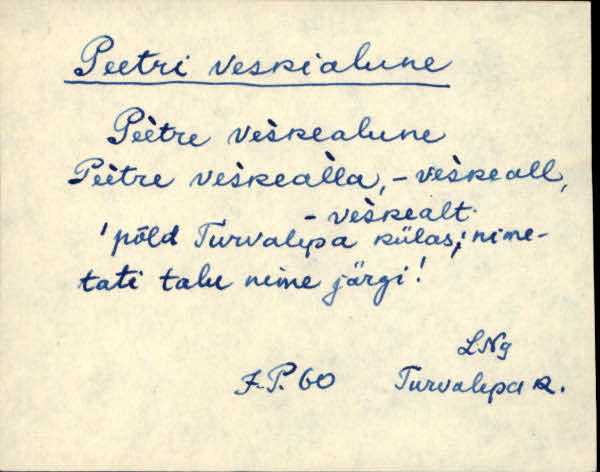 Peetri veskialune
Pèètre vèskealune
Pèètre vèskeàlla, - vèskeall,
- vèskealt
'põld Turvalepa külas; nime-
tati talu nime järgi!
LNg
F.P. 60 Turvalepa k.